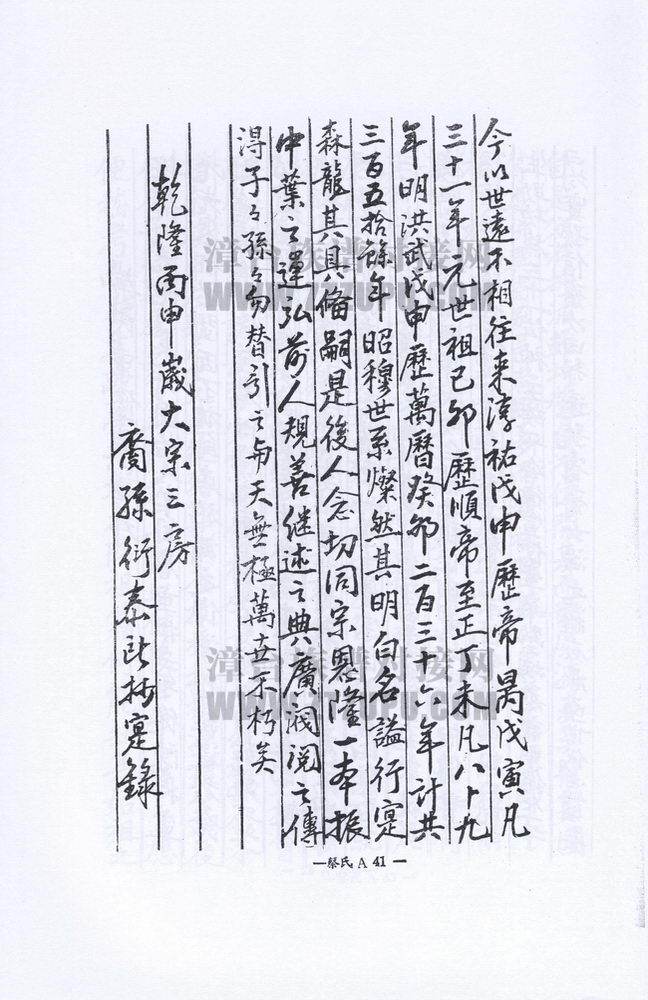 今以世遠不相往来淳祐戊申歷帝昺戊寅凡
三十一年元世祖己卯歷順帝至正丁未凡八十九
年明洪武戊申歷萬曆癸卯二百三十六年計共
三百五拾餘年昭穆世系燦然其明白名謚行寔
森龍其具俻嗣是後人念切同宗恩隆一本振
中葉之運弘前人規善继述之典廣阀阅之傳
得子々孫々勿替引之與天無極萬世不朽矣
乾隆丙申嵗大宗三房
裔孫衍泰抄寔錄
—蔡氏 A 41 —
漳台族谱对接网
WWW.ZZZUPU.COM
漳台族谱对接网
WWW.ZZZUPU.COM